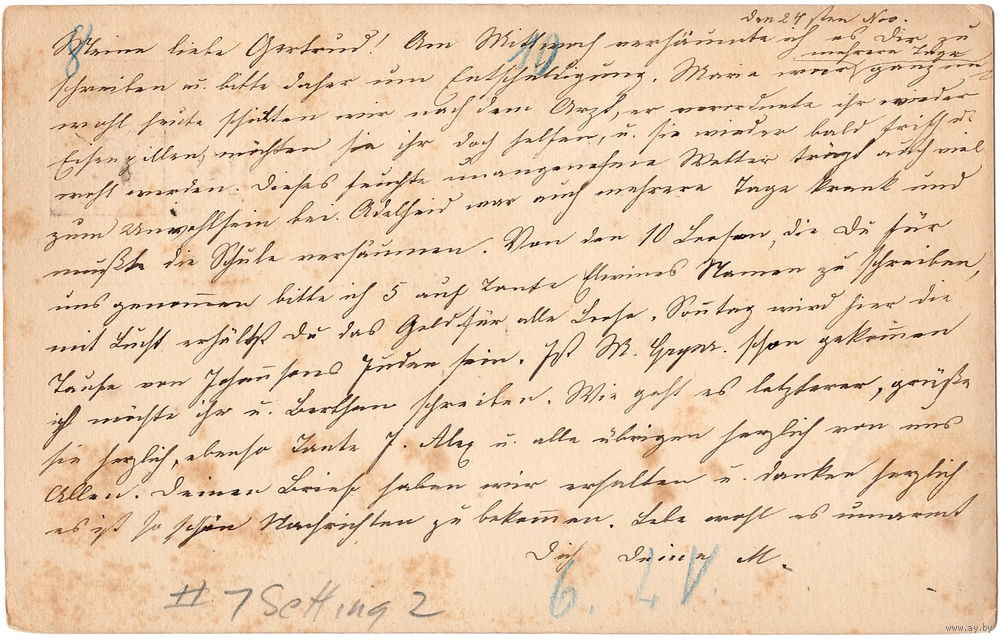 den 24sten Nov.
Meine liebe Gertrud! Am Mittwoch versäumte ich es Dir zu
schreiben u. bitte daher um Entschuldigung. Marie war mehrere Tage ganz un-
wohl, heute schickten wir nach dem Arzt, er verordnete ihr wieder
Eisenpillen, möchten sie ihr doch helfen, u. sie wieder bald frisch u.
wohl werden. Dieses feuchte unangenehme Wetter trägt auch viel
zum Unwohlsein bei. Adelheid war auch mehrere Tage krank und
mußte die Schule versäumen. Von den 10 Loosen, die Du für
uns genommen bitte ich 5 auf Tante Elwines Namen zu schreiben,
mit erhältst Du das Geld für alle Loose. Sonntag wird hier die
Taufe von Johannsons Juden sein. Ist M. schon gekommen
ich möchte ihr u. Berthan schreiben. Wie geht es letzterer, grüße
sie herzlich, ebenso Tante J. Alex u. alle übrigen herzlich von uns
Allen. Deinen Brief haben wir erhalten u. danken herzlich
es ist so schön Nachrichten zu bekommen. Lebe wohl es umarmt
Dich Deine M.
8
10
9.
# 7 Setting 2
www.ay.by